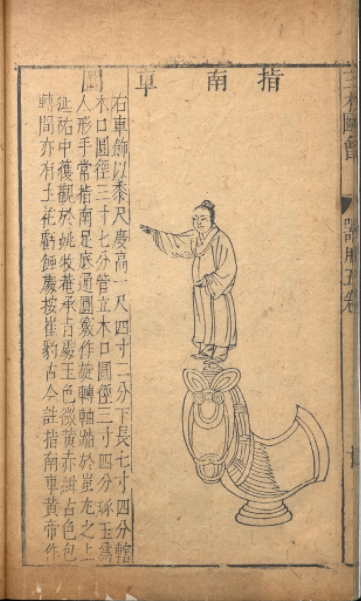 指南車
圖
右車飾以黍尺度高一尺四寸二分下長七寸四分轄
木口圓徑三寸七分管立木口圓徑三寸四分琢玉爲
人形手常指南足底通圓竅作旋轉軸踏於蚩尤之上
延祐中獲觀於姚牧菴承旨處玉色微黃赤紺古色包
轉間亦有土花虧蝕處按崔豹古今註指南車黃帝作
三才圖會
五卷